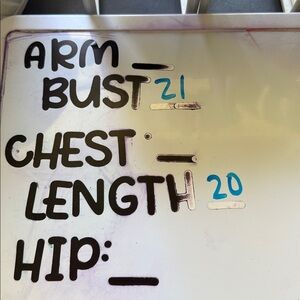 ARM __
BUST 21
CHEST: __
LENGTH 20
HIP: __